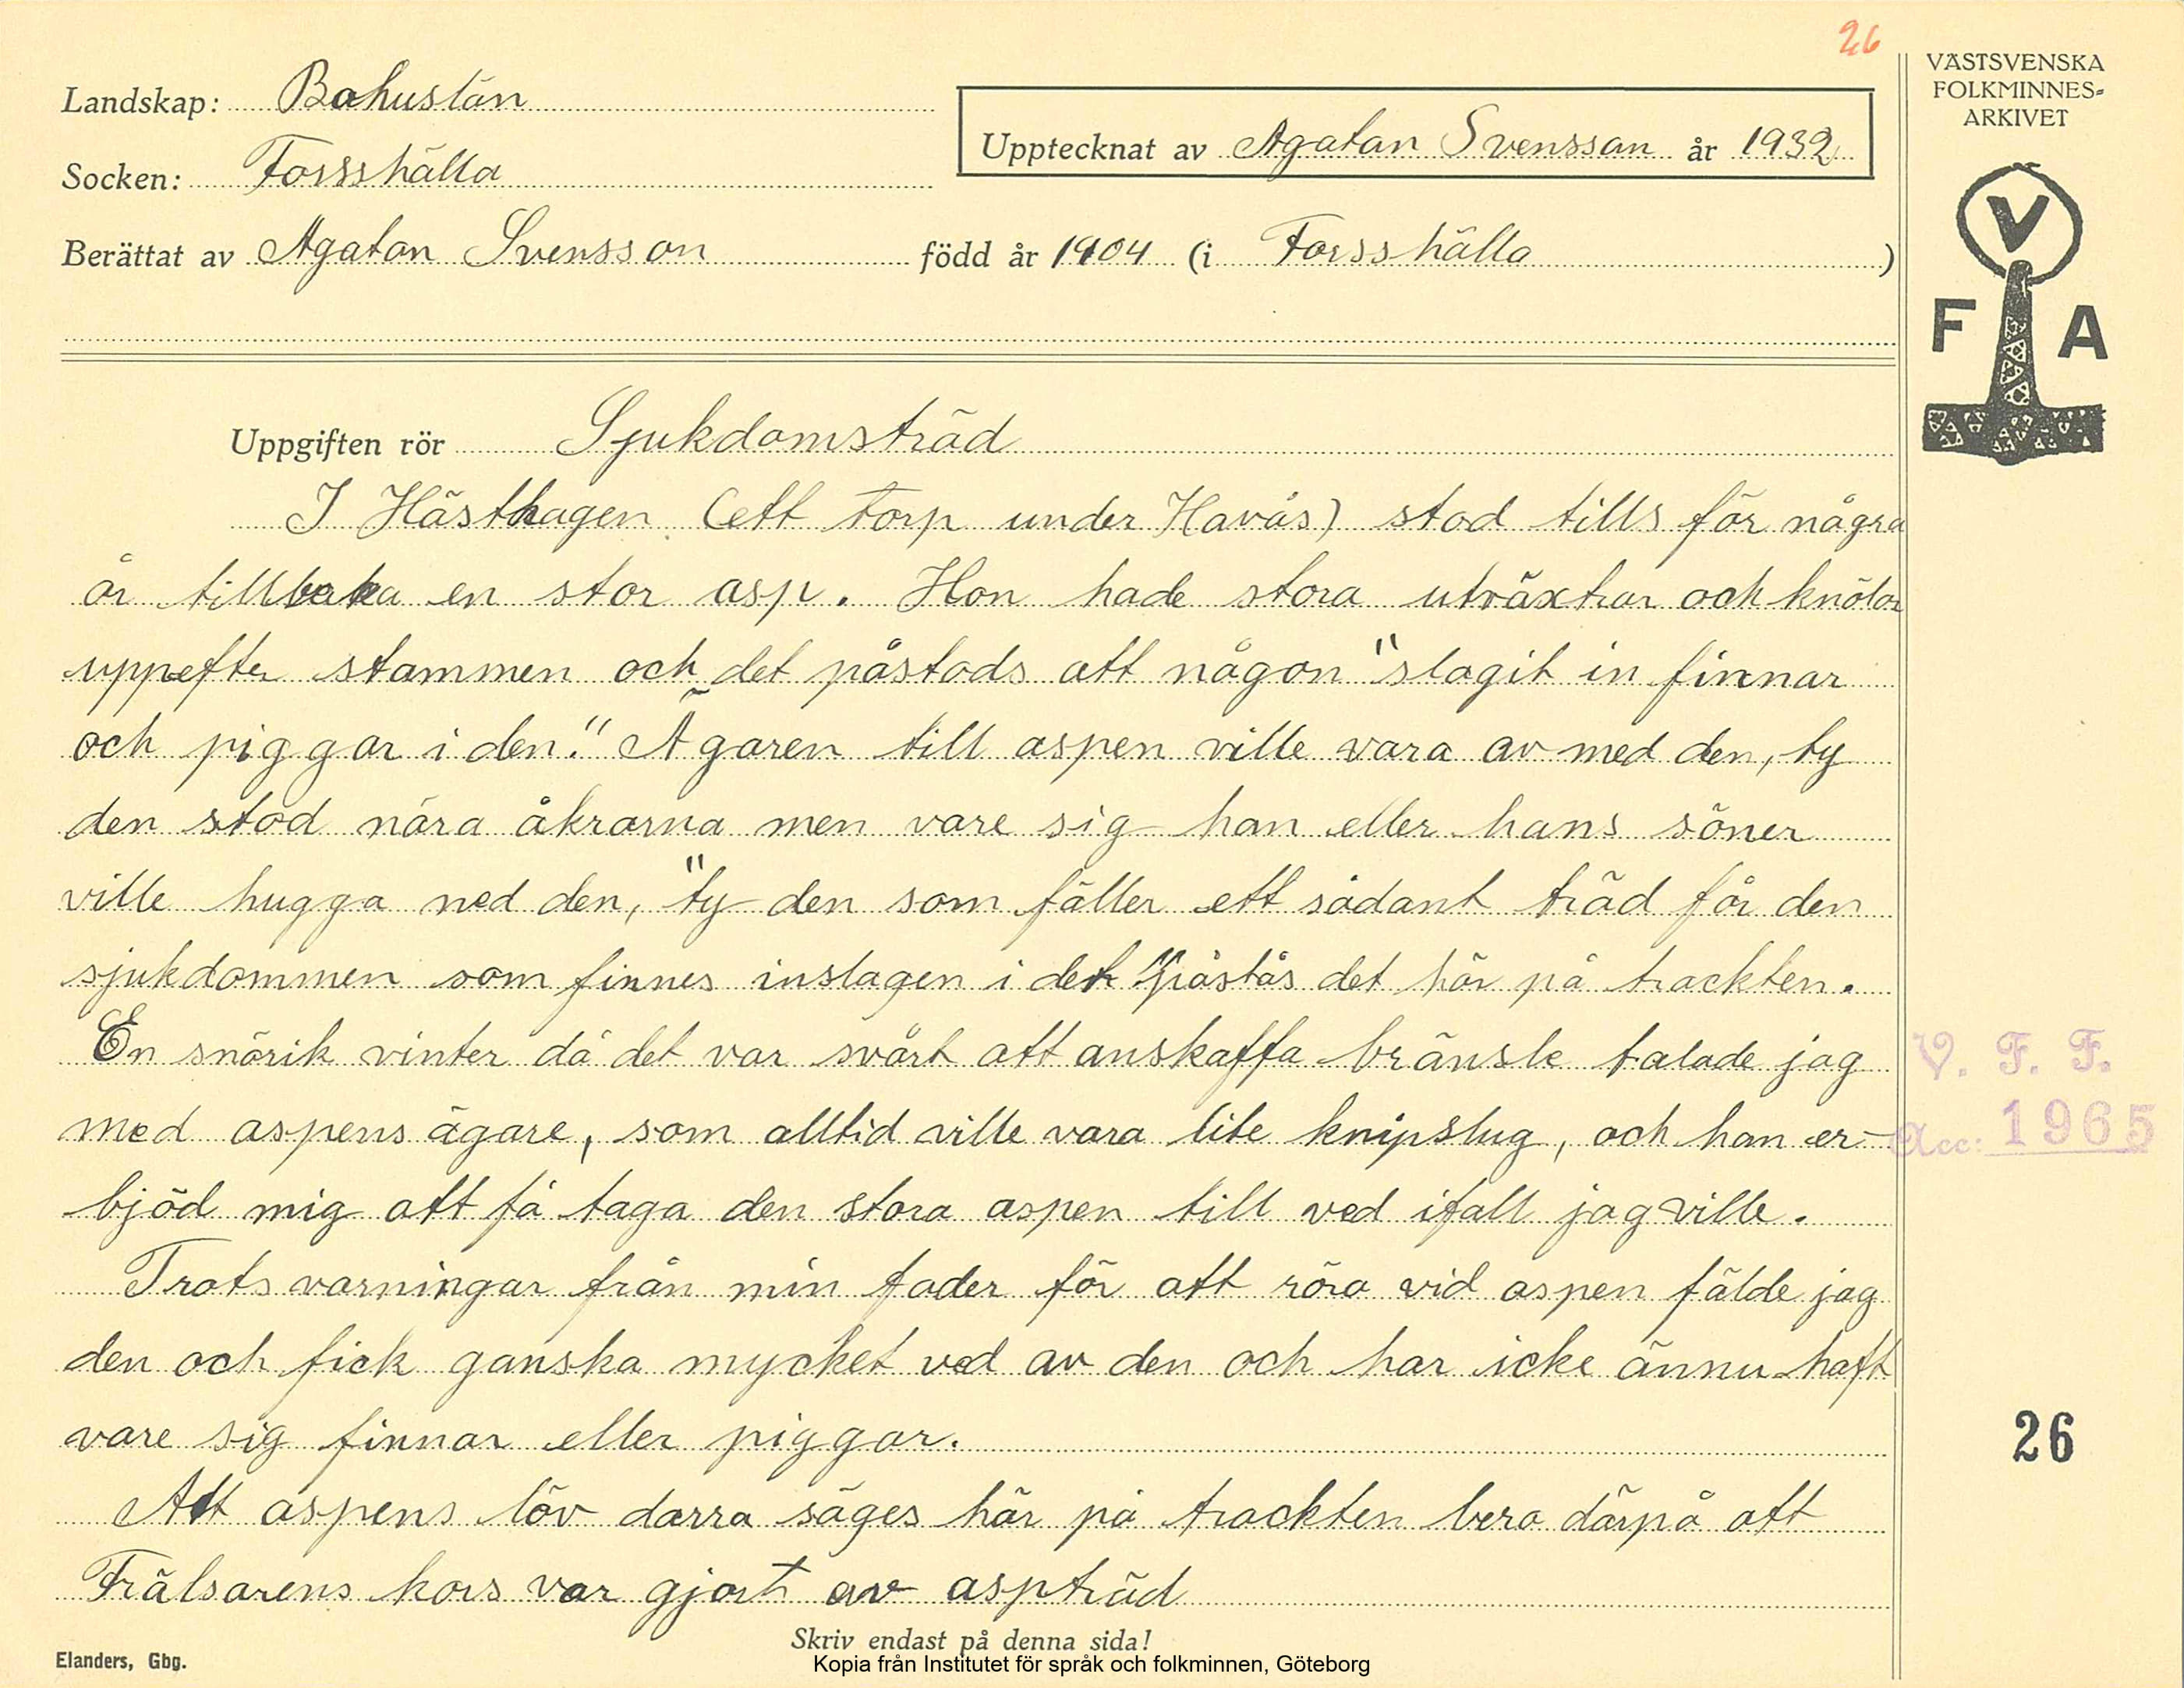 26
VÄSTSVENSKA
FOLKMINNES-
ARKIVET
Landskap: Bohuslän
Upptecknat av Agaton Svensson år 1932
Socken: Forsshälla
Berättat av Agaton Svensson född år 1904 (i Forsshälla)
V
F A
Uppgiften rör Sjukdomsträd
I Hästhagen (ett torp under Havås) stod tills för några
år tillbaka en stor asp. Hon hade stora utväxtrar och knölar
uppefter stammen och det påstods att någon "slagit in finnar
och piggar i den." Ägaren till aspen ville vara av med den, ty
den stod nära åkrarna men vare sig han eller hans söner
ville hugga ned den, "ty den som fäller ett sådant träd får den
sjukdommen som finnes inslagen i det" påstås det här på trackten.
En snörik vinter då det var svårt att anskaffa bränsle talade jag
med aspens ägare, som alltid ville vara lite knipslug, och han er-
bjöd mig att få taga den stora aspen till ved ifall jag ville.
Trots varningar från min fader för att röra vid aspen fälde jag
den och fick ganska mycket ved av den och har icke ännu haft
vare sig finnar eller piggar.
Att aspens löv darra säges här på trackten bero därpå att
Frälsarens kors var gjort av aspträd
V. F. F.
Acc: 1965
26
Skriv endast på denna sida!
Elanders, Gbg.
Kopia från Institutet för språk och folkminnen, Göteborg